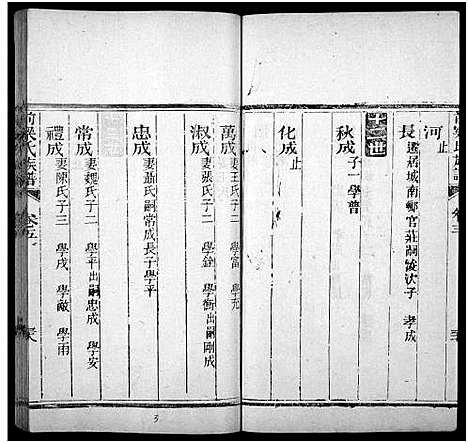 河 止
長 遷居城南鄉官莊嗣 次子 孝成
十二世
秋成 子一 學普
化成 止
萬成 妻王氏子二 學富 學允
淑成 妻張氏子二 學銓 學衡出嗣剛成
忠成 妻聶氏嗣常成長子學平
常成 妻魏氏子二 學平出嗣忠成 學安
禮成 妻陳氏子三 學成 學敵 學雨
氏族譜
卷五
3